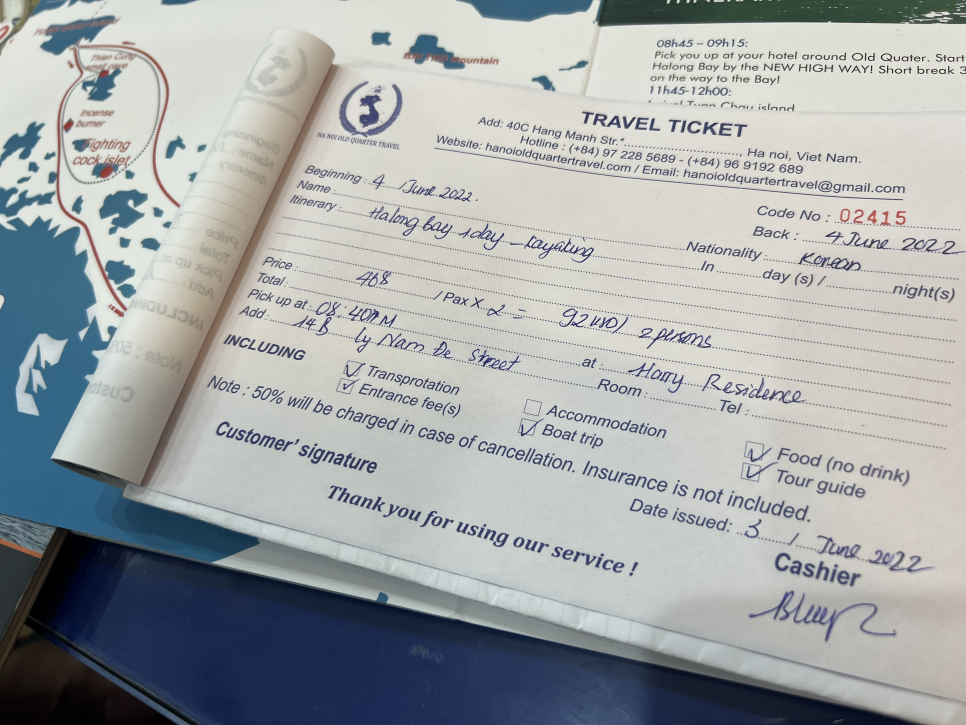 Thien Cung
Incense
burner
cock islet
Mountain
08h45 - 09h15:
Pick you up at your hotel around Old Quater. Start
Halong Bay by the NEW HIGH WAY! Short break 3
on the way to the Bay!
11h45-12h00:
Tuan Chau island
HA NOI OLD QUARTER TRAVEL
TRAVEL TICKET
Add: 40C Hang Manh Str.*, Ha noi, Viet Nam.
Hotline : (+84) 97 228 5689 - (+84) 96 9192 689
Website: hanoioldquartertravel.com / Email: hanoioldquartertravel@gmail.com
Code No : 02415
Beginning : 4 / June 2022. Back : 4 June 2022
Name : Nationality : Korean
Itinerary : Halong Bay 1day - kayaking In day (s) / night(s)
Price : 46$ / Pax X 2 = 92USD / 2 persons
Total :
Pick up at : 08:40AM at : Harry Residence
Add : 14B Ly Nam De Street Room : Tel :
INCLUDING
Transprotation Accommodation Food (no drink)
Entrance fee(s) Boat trip Tour guide
Note : 50% will be charged in case of cancellation. Insurance is not included.
Customer' signature Date issued: 3 / June 2022
Thank you for using our service !
Cashier